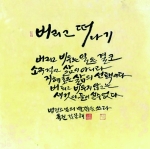 버리고 떠
나기
버리고 비우는 일은 결코
소극적인 삶이 아니라
지혜로운 삶의 선택이다
버리고 비우지 않고는
새것이 들어설 수 없다
법정스님의 글을 쓰다